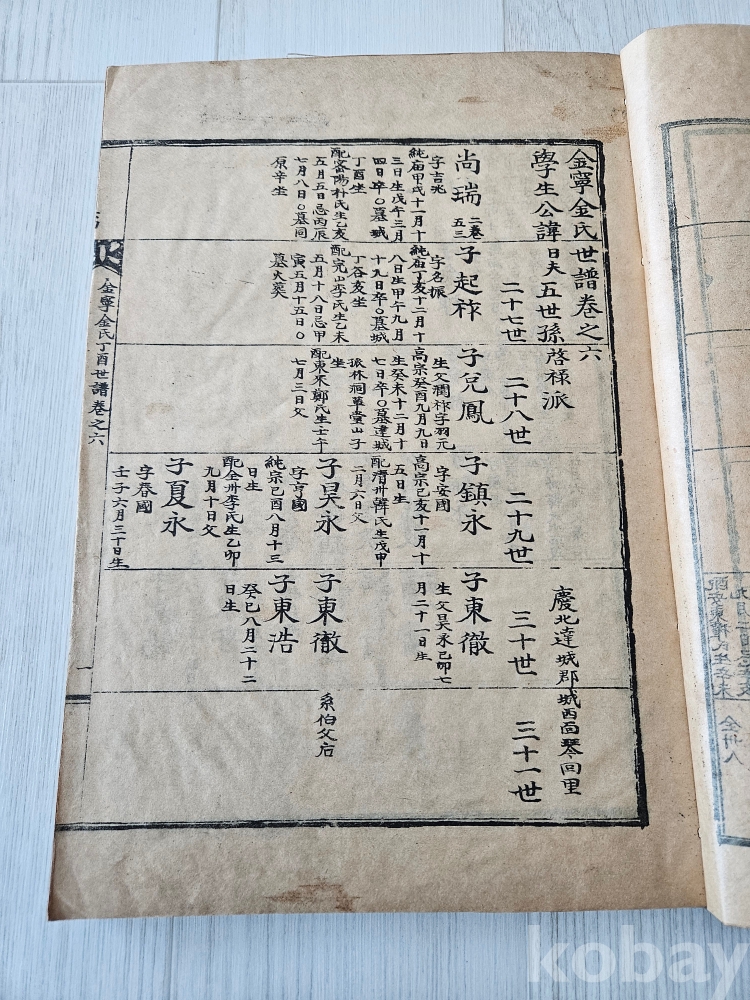 金寧金氏世譜卷之六
學生公諱日夫五世孫啓祿派
慶北達城郡城西面琴回里
二十七世
二十八世
二十九世
三十世
三十一世
尚瑞
二卷
五三
字吉兆
純庙甲戌十一月十
三日生戊午三月
四日卒〇墓城
丁酉坐
配密陽朴氏生乙亥
五月五日忌丙辰
七月八日〇墓同
原辛坐
子起祚
字名振
純庙丁亥十二月十
八日生甲午九月
十九日卒〇墓城
丁谷亥坐
配完山李氏生乙未
五月十八日忌甲
寅五月十五日〇
墓火葬
子兌鳳
生父潤祚字羽元
高宗癸酉九月九日
生癸未十二月十
七日卒〇墓達城
孤林祠草堂山子
坐
配東萊鄭氏生壬午
七月三日父
子鎮永
字安國
高宗己亥十一月十
五日生
配清州韓氏生戊申
二月六日父
子昊永
字亨國
純宗己酉八月十三
日生
配全州李氏生乙卯
九月十日父
子夏永
字春國
壬子六月三十日生
子東徹
生父昊永己卯七
月二十一日生
子東徹
系伯父后
子東浩
癸巳八月二十二
日生
金寧金氏丁酉世譜卷之六
配安東權氏生辛未
kobay